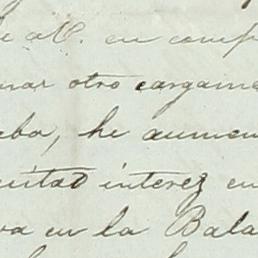 e a C. en comp
nar otro cargame
eba, he aumen
cuitad interez en
va en la Bala